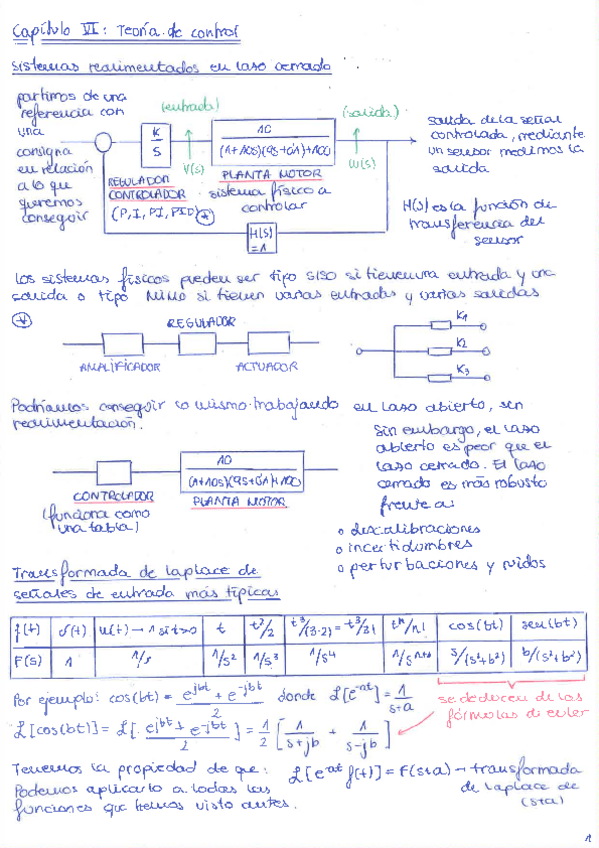 Capítulo VI: Teoría de control
Sistemas realimentados en lazo cerrado
partimos de una
referencia con
una
consigna
en relación
a lo que
queremos
conseguir
(entrada)
(salida)
K
S
10
(1+10s)(9s+61)+100
V(s)
W(s)
REGULADOR
CONTROLADOR
(P, I, PI, PID)
PLANTA MOTOR
sistema físico a
controlar
H(s)
=1
salida de la señal
controlada, mediante
un sensor medimos la
salida
H(s) es la función de
transferencia del
sensor
Los sistemas físicos pueden ser tipo SISO si tienen una entrada y una
salida o tipo MIMO si tienen varias entradas y varias salidas
REGULADOR
AMPLIFICADOR
ACTUADOR
K1
K2
K3
Podríamos conseguir lo mismo trabajando en lazo abierto, sin
realimentación.
Sin embargo, el lazo
abierto es peor que el
lazo cerrado. El lazo
cerrado es más robusto
frente a:
o descalibraciones
o incertidumbres
o perturbaciones y ruidos
10
(1+10s)(9s+61)+100
CONTROLADOR
(funciona como
una tabla)
PLANTA MOTOR
Transformada de laplace de
señales de entrada más típicas
f(t) δ(t) u(t)→1 si t>0 t t²/2 t³/(3·2)=t³/3! tⁿ/n! cos(bt) sen(bt)
F(s) 1 1/s 1/s² 1/s³ 1/s⁴ 1/sⁿ⁺¹ s/(s²+b²) b/(s²+b²)
Por ejemplo: cos(bt) = (e^jbt + e^-jbt)/2 donde ℒ[e^-at] = 1/(s+a)
se deducen de las
fórmulas de euler
ℒ[cos(bt)] = ℒ[(e^jbt + e^-jbt)/2] = 1/2 [1/(s+jb) + 1/(s-jb)]
Tenemos la propiedad de que: ℒ[e^-at f(t)] = F(s+a) → transformada
de laplace de
(s+a)
Podemos aplicarlo a todas las
funciones que hemos visto antes.
1